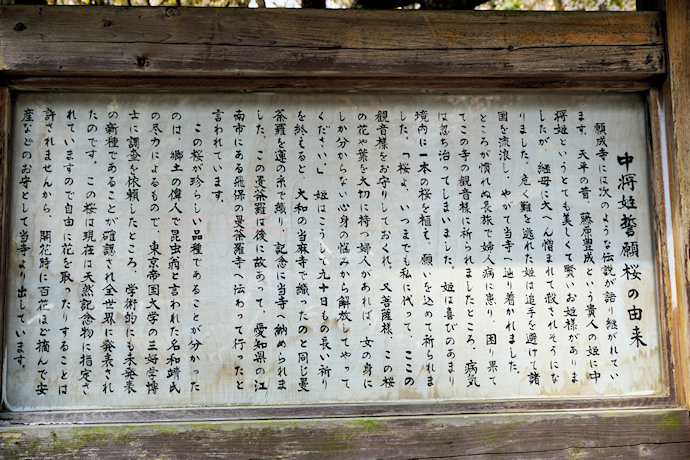 中将姫誓願桜の由来
願成寺には次のような伝説が語り継がれてい
ます。天平の昔、藤原豊成という貴人の姫に中
将姫というとても美しくて賢いお姫様がありま
したが、継母に大へん憎まれて殺されそうにな
りました。危く難を逃れた姫は追手を避けて諸
国を流浪し、やがて当寺へ辿り着かれました。
ところが慣れぬ長旅で婦人病に患り、困り果て
てこの寺の観音様に祈られましたところ、病気
は忽ち治ってしまいました。姫は喜びのあまり
境内に一本の桜を植え、願いを込めて祈られま
した。「桜よ、いつまでも私に代って、ここの
観音様をお守りしておくれ、又菩薩様、この桜
の花や葉を大切に持つ婦人があれば、女の身に
しか分からない心身の悩みから解放してやって
ください。」姫はこうして九十日もの長い祈り
を終えると、大和の当麻寺で織ったのと同じ曼
荼羅を蓮の糸で織り、記念に当寺へ納められま
した。この曼荼羅は後に故あって、愛知県の江
南市にある飛保の曼荼羅寺へ伝わって行ったと
言われています。
この桜が珍らしい品種であることが分かった
のは、郷土の偉人で昆虫翁と言われた名和靖氏
の尽力によるもので、東京帝国大学の三好学博
士に調査を依頼したところ、学術的にも未発表
の新種であることが確認され全世界に発表され
たのです。この桜は現在は天然記念物に指定さ
れていますので自由に花を取ったりすることは
許されませんから、開花時に百花ほど摘んで安
産などのお守として当寺より出しています。